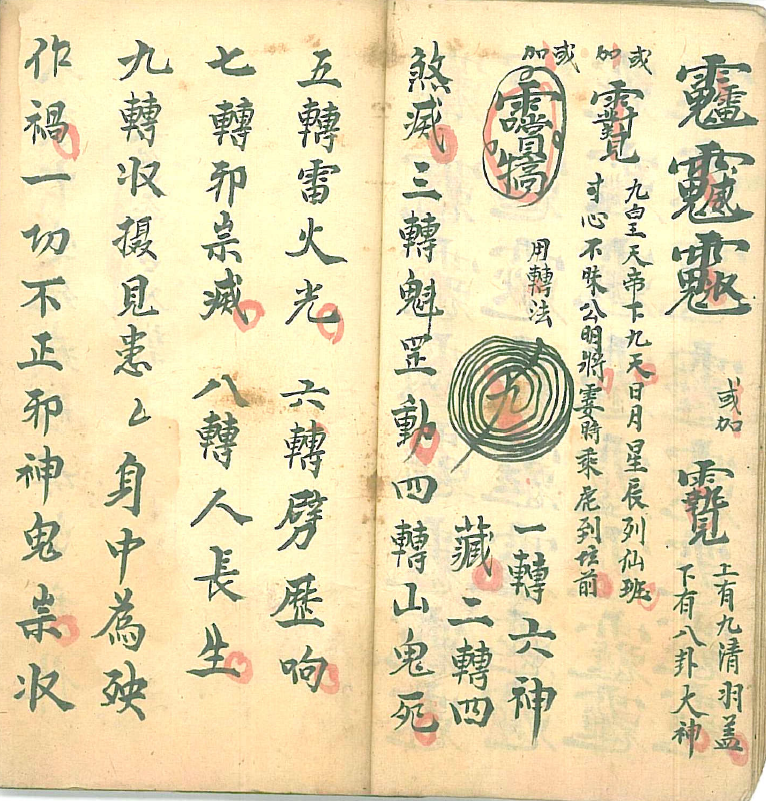 或加
上有九清羽盖
下有八卦大神
或加
九皇天帝下九天日月星辰列仙班
寸心不昧公明將霎時乘虎到坛前
或加
用轉法
一轉六神
藏二轉四
煞滅三轉魁罡動四轉山鬼死
五轉雷火光 六轉劈歷响
七轉邪祟滅 八轉人長生
九轉収攝見患身中為殃
作禍一切不正邪神鬼祟収